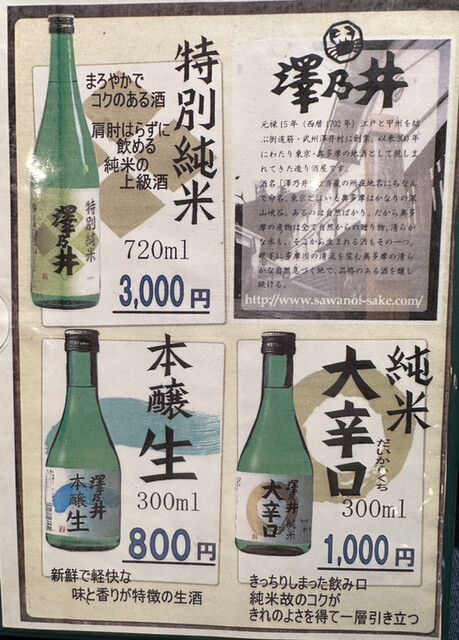 まろやかで
コクのある酒
肩肘はらずに
飲める
純米の
上級酒
特別純米
特別純米
澤乃井
720ml
3,000円
澤乃井
元禄15年(西暦1702年)江戸と甲州を結
ぶ街道筋・武州澤井村に創業。以来300年
にわたり東京・奥多摩の地酒として親しま
れてきた造り酒屋です。
酒名「澤乃井」は当蔵の所在地名にちなん
で命名。東京とはいえ奥多摩はかなりの深
山峡谷。あるのは自然ばかり。だから奥多
摩の産物は全て自然からの贈り物。清らか
な水も、そこから生まれる酒もその一つ。
眼下に多摩川の清流を望む奥多摩の清ら
かな自然息づく地で、品格のある酒を醸し
続ける。
http://www.sawanoi-sake.com/
本醸生
澤乃井
本醸生
300ml
800円
新鮮で軽快な
味と香りが特徴の生酒
純米
大辛口
だいからくち
澤乃井純米
大辛口
300ml
1,000円
きっちりしまった飲み口
純米故のコクが
きれのよさを得て一層引き立つ